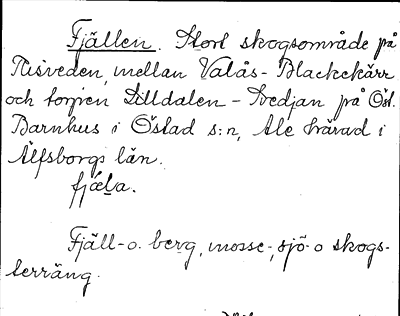 Fjällen. Stort skogsområde på
Risveden, mellan Valås - Blackekärr
och torpen Lilldalen - Svedjan på Öst.
Barnhus i Östad s:n, Ale härad i
Älfsborgs län.
fjæla.
Fjäll- o. berg, mosse-, sjö- o skogs-
terräng.